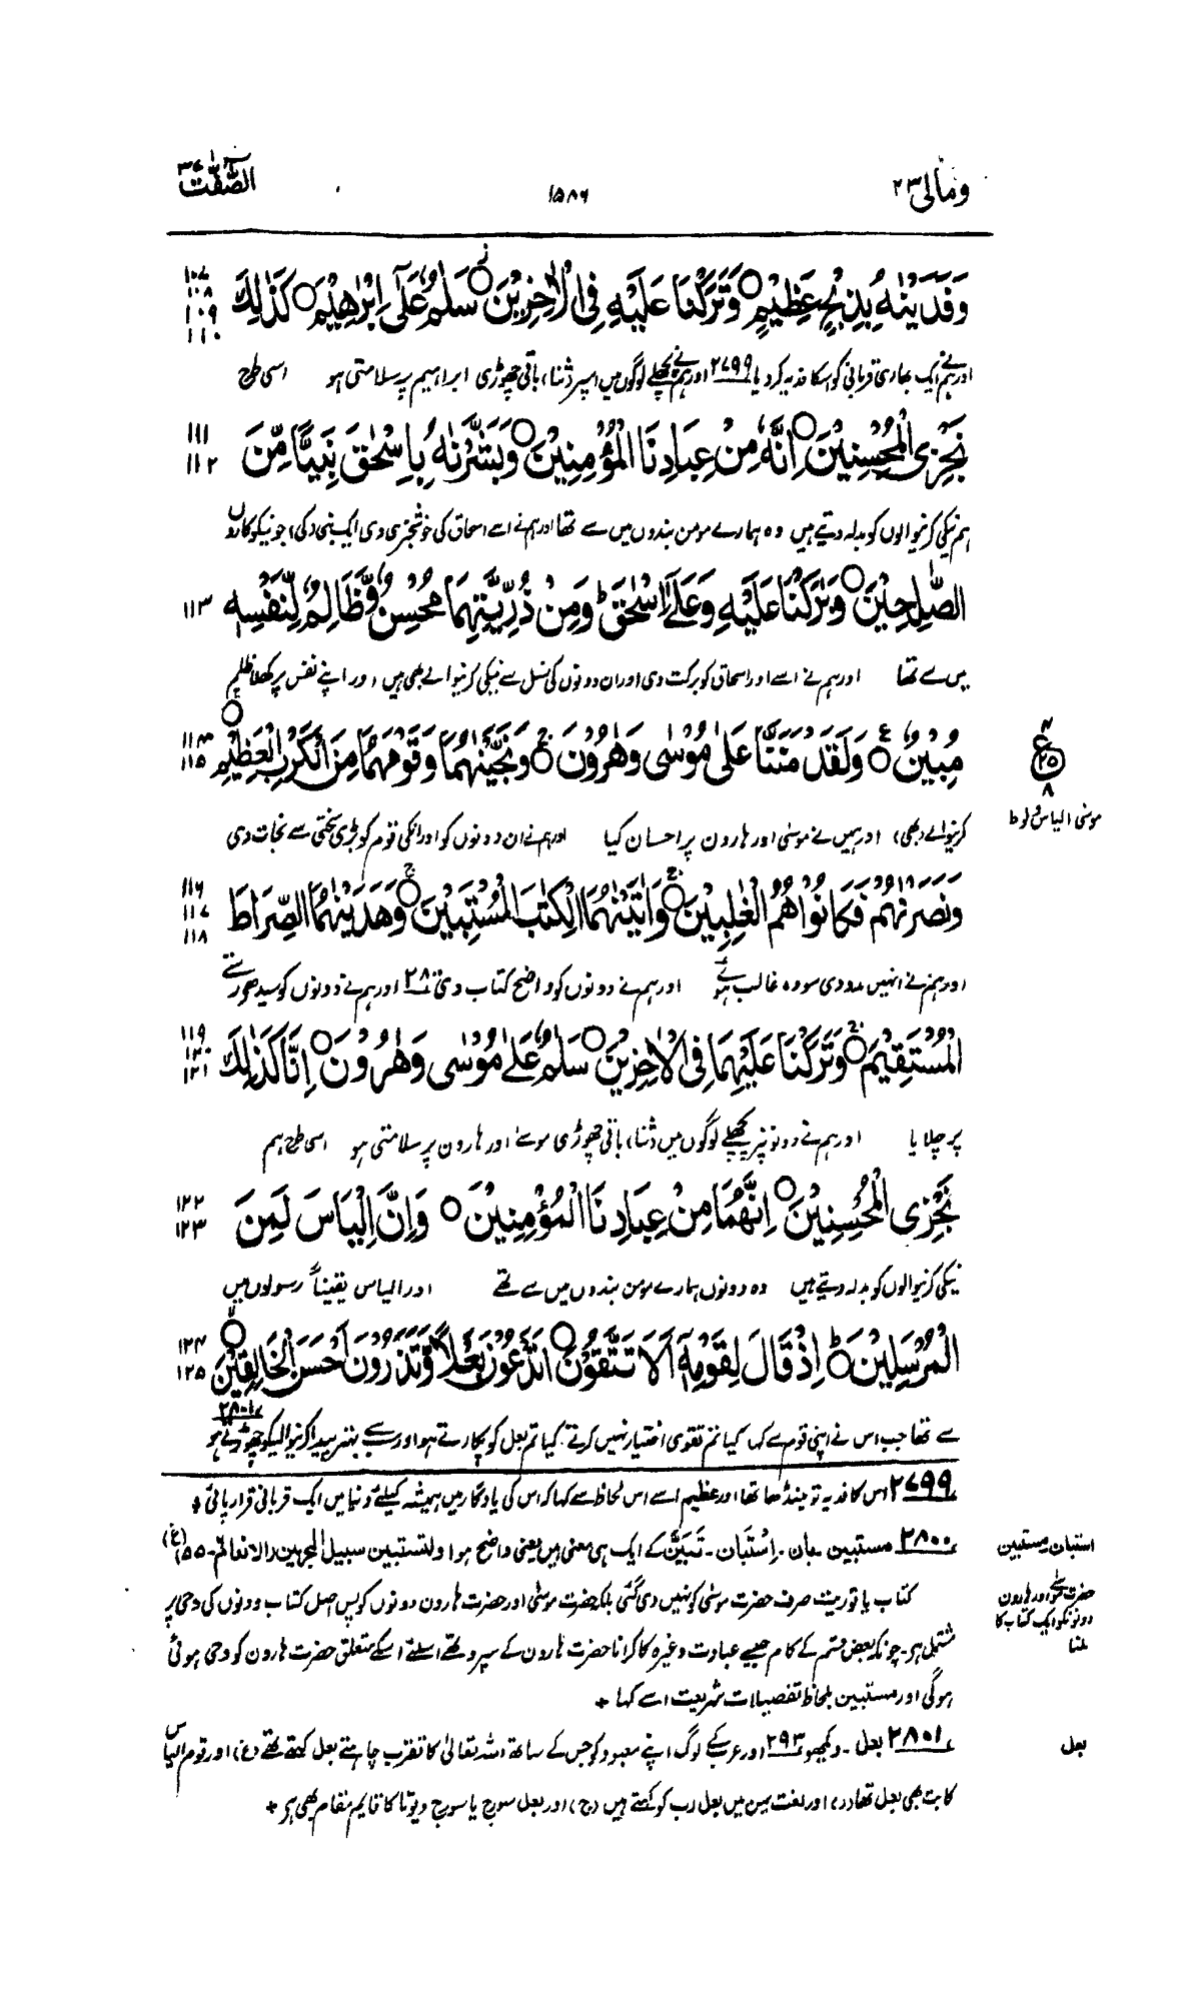 ومالی ٢٣
١٥٨٦
الصّٰٓفّٰت ٣٧
وَفَدَيْنٰهُ بِذِبْحٍ عَظِيْمٍ ○ وَتَرَكْنَا عَلَيْهِ فِى الْاٰخِرِيْنَ ○ سَلٰمٌ عَلٰٓى اِبْرٰهِيْمَ ○ كَذٰلِكَ
١٠٧
١٠٨
١٠٩
١١٠
اور ہم نے ایک بھاری قربانی کو اسکا فدیہ کر دیا ٢٧٩٩ اور ہم نے پچھلے لوگوں میں اسپر (ثنا) باقی چھوڑی ابراہیم پر سلامتی ہو اسی طرح
نَجْزِى الْمُحْسِنِيْنَ ○ اِنَّهٗ مِنْ عِبَادِنَا الْمُؤْمِنِيْنَ ○ وَبَشَّرْنٰهُ بِاِسْحٰقَ نَبِيًّا مِّنَ
١١١
١١٢
ہم نیکی کرنیوالوں کو بدلہ دیتے ہیں وہ ہمارے مومن بندوں میں سے تھا اور ہم نے اسے اسحاق کی خوشخبری دی ایک نبی (کی) جو نیکو کاروں
الصّٰلِحِيْنَ ○ وَبٰرَكْنَا عَلَيْهِ وَعَلٰٓى اِسْحٰقَ ؕ وَمِنْ ذُرِّيَّتِهِمَا مُحْسِنٌ وَّظَالِمٌ لِّنَفْسِهٖ
١١٣
میں سے تھا اور ہم نے اسے اور اسحاق کو برکت دی اور ان دونوں کی نسل سے نیکی کرنیوالے بھی ہیں اور اپنے نفس پر کھلا ظلم
مُبِيْنٌ ○ وَلَقَدْ مَنَنَّا عَلٰى مُوْسٰى وَهٰرُوْنَ ○ وَنَجَّيْنٰهُمَا وَقَوْمَهُمَا مِنَ الْكَرْبِ الْعَظِيْمِ ○
١١٤
١١٥
ع
٢٥
٨
موسٰی الیاس و لوط
کرنیوالے (بھی) اور ہمیں نے موسٰی اور ہارون پر احسان کیا اور ہم نے ان دونوں کو اور انکی قوم کو بڑی سختی سے نجات دی
وَنَصَرْنٰهُمْ فَكَانُوْا هُمُ الْغٰلِبِيْنَ ○ وَاٰتَيْنٰهُمَا الْكِتٰبَ الْمُسْتَبِيْنَ ○ وَهَدَيْنٰهُمَا الصِّرَاطَ
١١٦
١١٧
١١٨
اور ہم نے انہیں مدد دی سو وہ غالب ہوئے اور ہم نے دونوں کو واضح کتاب دی ٢٨٠٠ اور ہم نے دونوں کو سیدھے رستے
الْمُسْتَقِيْمَ ○ وَتَرَكْنَا عَلَيْهِمَا فِى الْاٰخِرِيْنَ ○ سَلٰمٌ عَلٰى مُوْسٰى وَهٰرُوْنَ ○ اِنَّا كَذٰلِكَ
١١٩
١٢٠
١٢١
پر چلایا اور ہم نے دونوں پر پچھلے لوگوں میں (ثنا) باقی چھوڑی موسٰے اور ہارون پر سلامتی ہو اسی طرح ہم
نَجْزِى الْمُحْسِنِيْنَ ○ اِنَّهُمَا مِنْ عِبَادِنَا الْمُؤْمِنِيْنَ ○ وَاِنَّ اِلْيَاسَ لَمِنَ
١٢٢
١٢٣
نیکی کرنیوالوں کو بدلہ دیتے ہیں وہ دونوں ہمارے مومن بندوں میں سے تھے اور الیاس یقیناً رسولوں میں
الْمُرْسَلِيْنَ ؕ اِذْ قَالَ لِقَوْمِهٖٓ اَلَا تَتَّقُوْنَ ○ اَتَدْعُوْنَ بَعْلًا وَّتَذَرُوْنَ اَحْسَنَ الْخَالِقِيْنَ ○
١٢٤
١٢٥
سے تھا جب اس نے اپنی قوم سے کہا کیا تم تقوی اختیار نہیں کرتے۔ کیا تم بعل کو پکارتے ہو اور سب سے بہتر پیدا کرنیوالیکو چھوڑتے ہو ٢٨٠١
٢٧٩٩ اس کا فدیہ تو مینڈھا تھا اور عظیم اسے اس لحاظ سے کہا کہ اس کی یادگار میں ہمیشہ کیلئے دنیا میں ایک قربانی قرار پائی +
٢٨٠٠ مستبین۔ بان۔ اِسْتَبَان۔ تَبَیَّن کے ایک ہی معنی ہیں یعنی واضح ہوا ولتستبین سبیل المجرمین (الانعام۔٥٥) (غ)
استبان۔ مستبین
کتاب یا توریت صرف حضرت موسٰی کو نہیں دی گئی بلکہ حضرت موسٰی اور حضرت ہارون دونوں کو پس اصل کتاب دونوں کی وحی پر
حضرت موسٰے اور ہارون
دونوں کو ایک کتاب کا
ملنا
مشتمل ہے۔ چونکہ بعض قسم کے کام جیسے عبادت وغیرہ کا کرانا حضرت ہارون کے سپرد تھے اسلئے اسکے متعلق حضرت ہارون کو وحی ہوئی
ہوگی اور مستبین بلحاظ تفصیلات شریعت اسے کہا +
٢٨٠١ بعل۔ دیکھو ٢٩٣ اور عرب کے لوگ اپنے معبود کو جس کے ساتھ اللہ تعالٰی کا تقرب چاہتے بعل کہتے تھے (غ) اور قوم الیاس
بعل
کا بت بھی بعل تھا (ر) اور لغت یمن میں بعل رب کو کہتے ہیں (ج) اور بعل سورج یا سورج دیوتا کا قایم مقام بھی ہے +